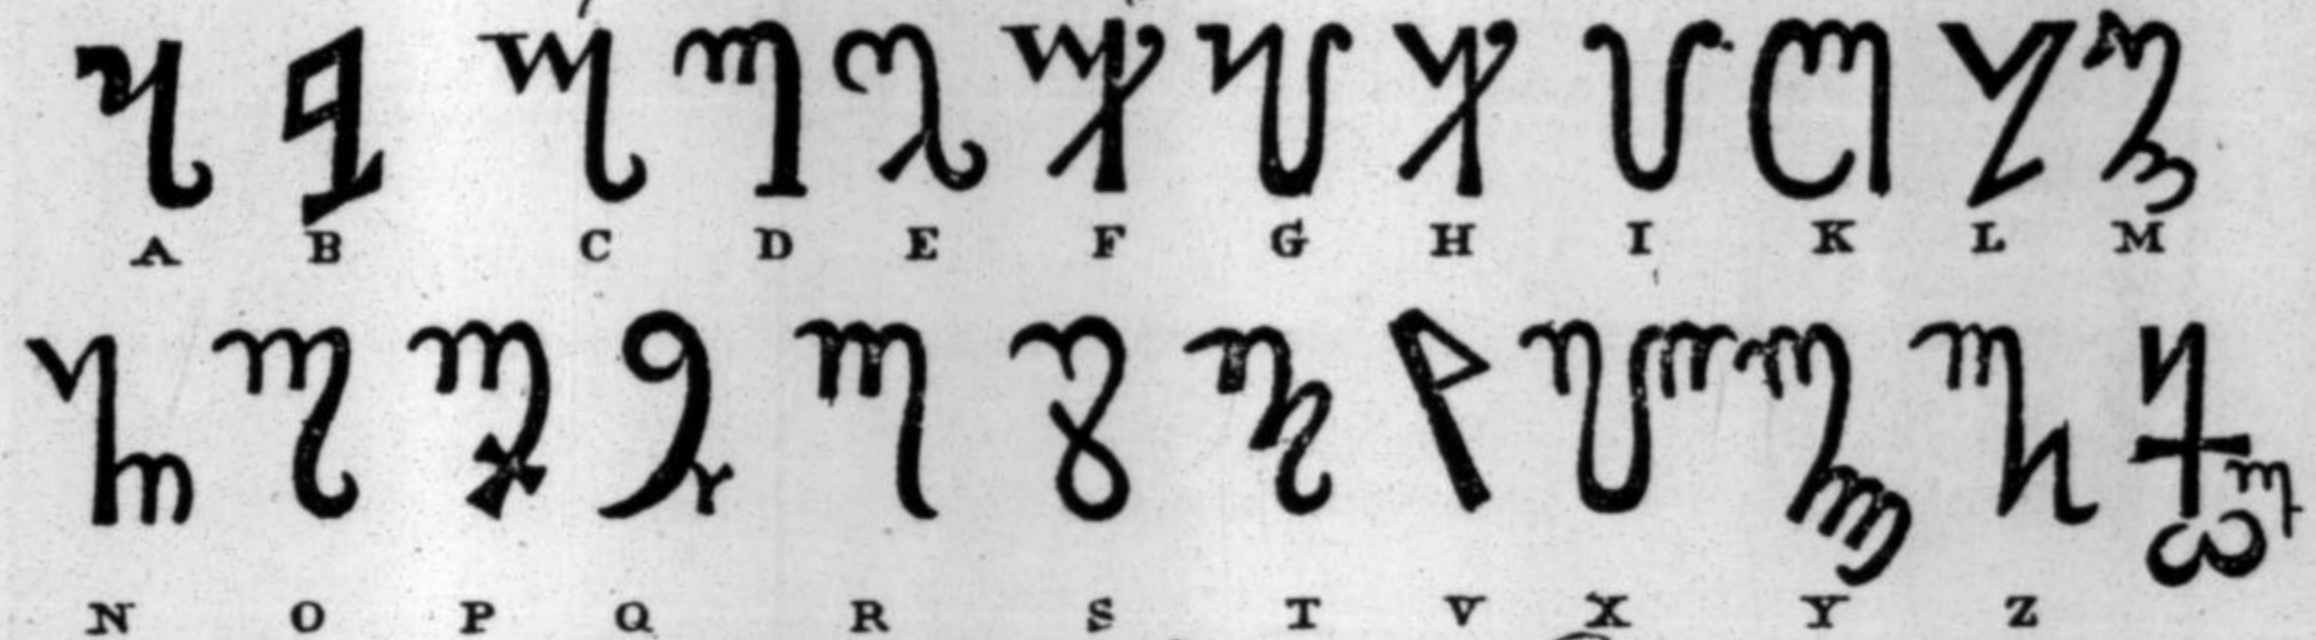 A B C D E F G H I K L M
N O P Q R S T V X Y Z